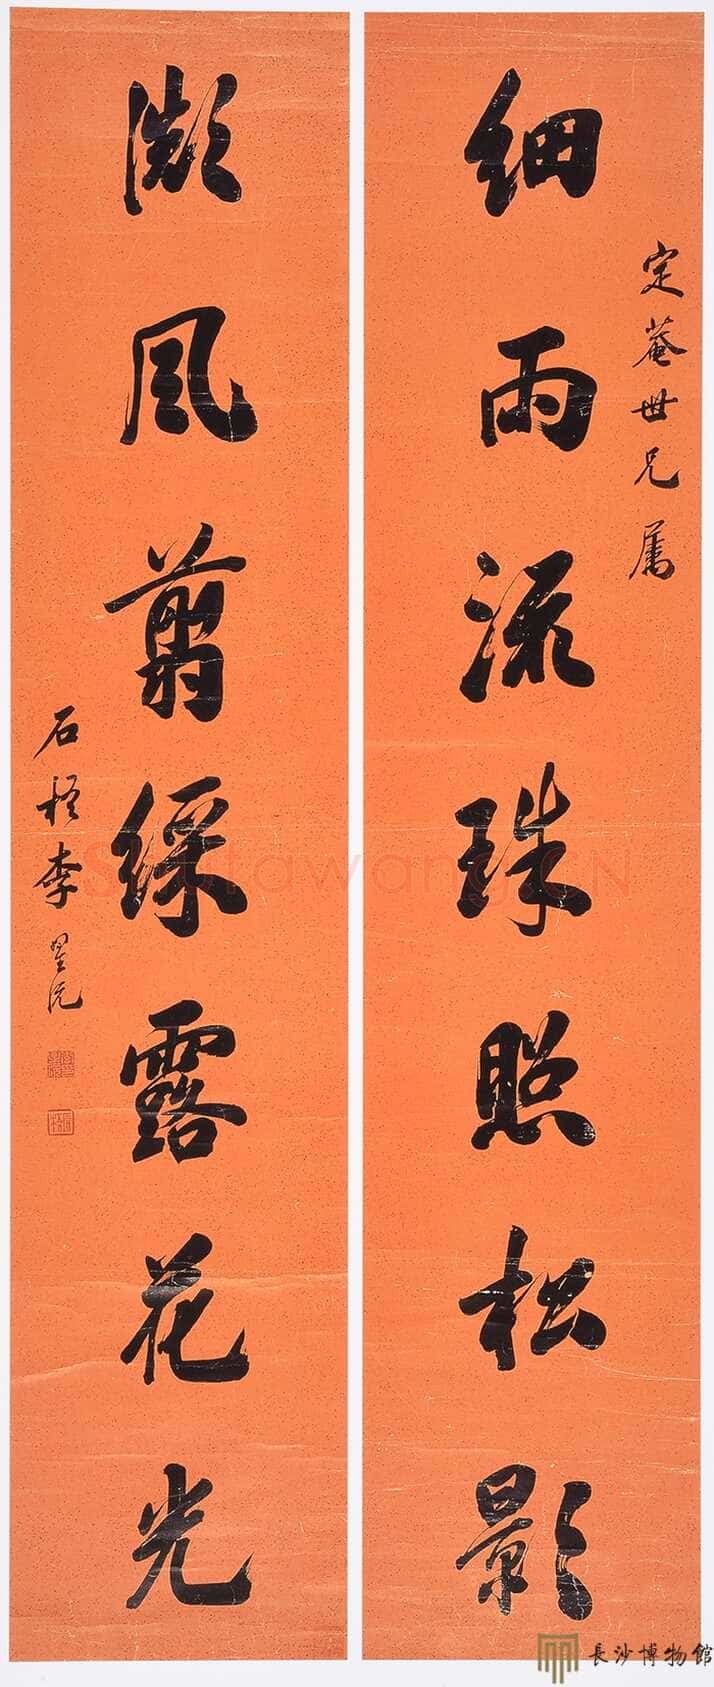 細雨流珠照松影
定菴世兄屬
微風翦綵露花光
石梧李星沅
Shufawang.cn
長沙博物館